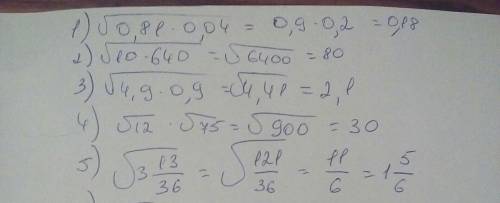 1) √0,81·0,04 = 0,9·0,2 = 0,18
2) √10·640 = √6400 = 80
3) √4,9·0,9 = √4,41 = 2,1
4) √12 · √75 = √900 = 30
5) √3 13/36 = √121/36 = 11/6 = 1 5/6